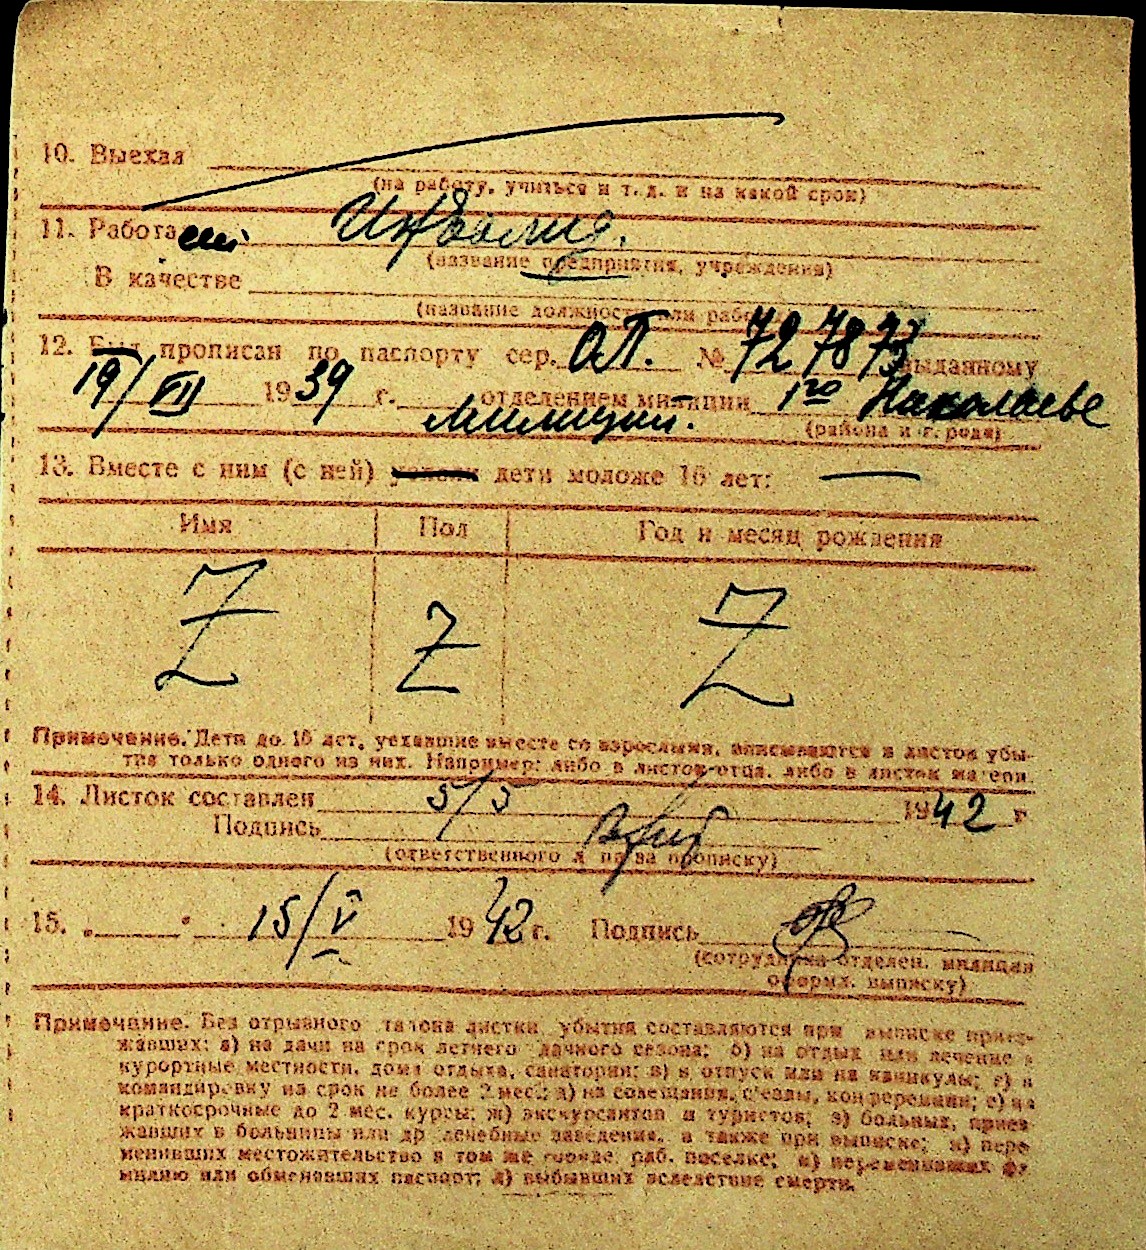 10. Выехал
(на работу, учиться и т. д. и на какой срок)
11. Работа Инвалид.
(название предприятия, учреждения)
В качестве
(название должности или работы)
12. Был прописан по паспорту сер. ОП. № 727873 выданному
19/VII 1939 г. отделением милиции 1го Николаеве
Милиции.
(района и города)
13. Вместе с ним (с ней) дети моложе 16 лет: —
Имя Пол Год и месяц рождения
Z Z Z
Примечание. Дети до 16 лет, уехавшие вместе со взрослыми, вписываются в листок убы-
тия только одного из них. Например: либо в листок отца, либо в листок матери.
14. Листок составлен 5/5 1942 г
Подпись
(ответственного за прописку)
15. „ “ 15/V 1942 г. Подпись
(сотрудника отделен. милиции
оформл. выписку)
Примечание. Без отрывного талона листки убытия составляются при выписке приез-
жавших: а) на дачи на срок летнего дачного сезона; б) на отдых или лечение в
курортные местности, дома отдыха, санатории; в) в отпуск или на каникулы; г) в
командировку на срок не более 2 мес.; д) на совещания, съезды, конференции; е) на
краткосрочные до 2 мес. курсы; ж) экскурсантов и туристов; з) больных, приез-
жавших в больницы или др. лечебные заведения, а также при выписке; и) пере-
менивших местожительство в том же городе, раб. поселке; к) переменивших фа-
милию или обменявших паспорт; л) выбывших вследствие смерти.